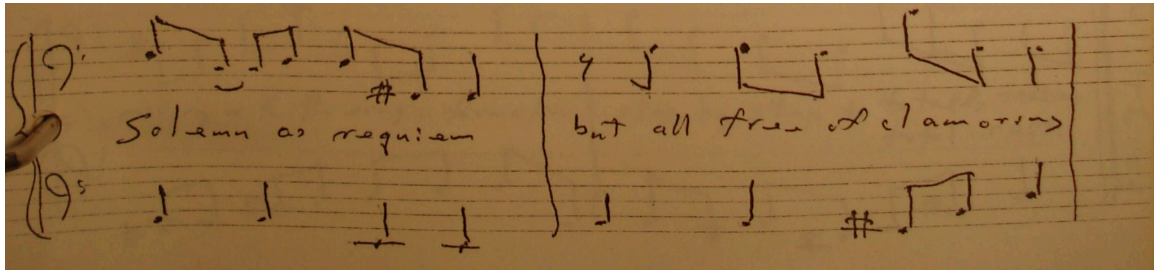 Solemn as requiem but all free of clamoring